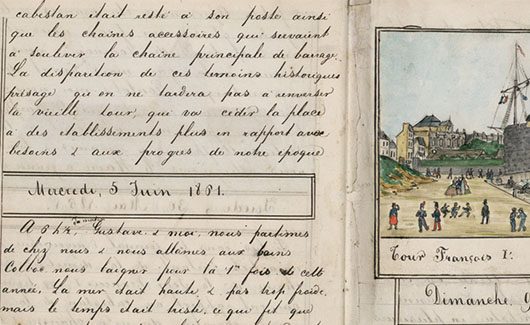 cabestan était resté à son poste ainsi
que les chaînes accessoires qui servaient
à soulever la chaîne principale de barrage.
La disparition de ces temoins historiques
présage qu'on ne tardera pas à renverser
la vieille tour, qui va céder la place
à des etablissements plus en rapport avec
besoins & aux progres de notre epoque
Mercredi, 5 Juin 1861.
A 6 h ¼, Gustave & moi, nous partimes
de chez nous & nous allâmes aux bains
nous baigner pour la 1re fois de cette
année. La mer était haute & pas trop froide.
mais le temps était triste, ce qui fit que
Tour François 1er
Dimanche,